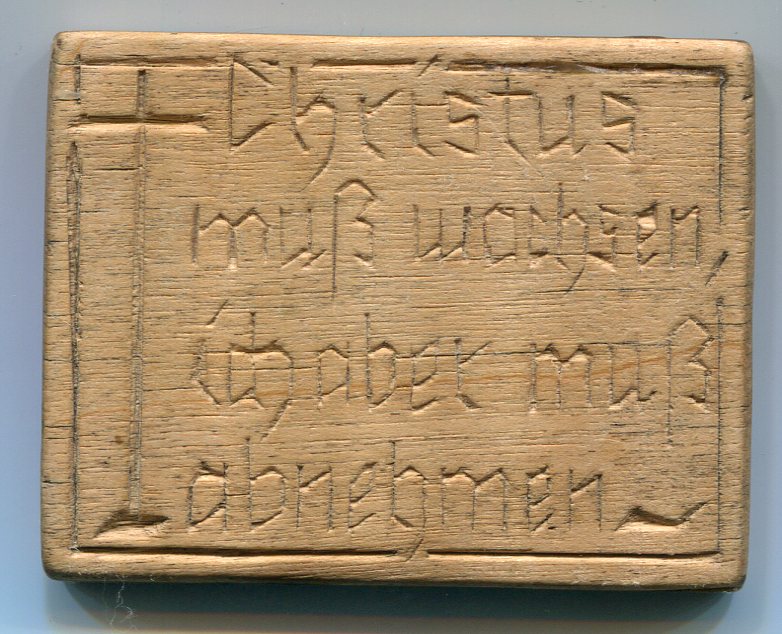 Christus
muß wachsen,
ich aber muß
abnehmen